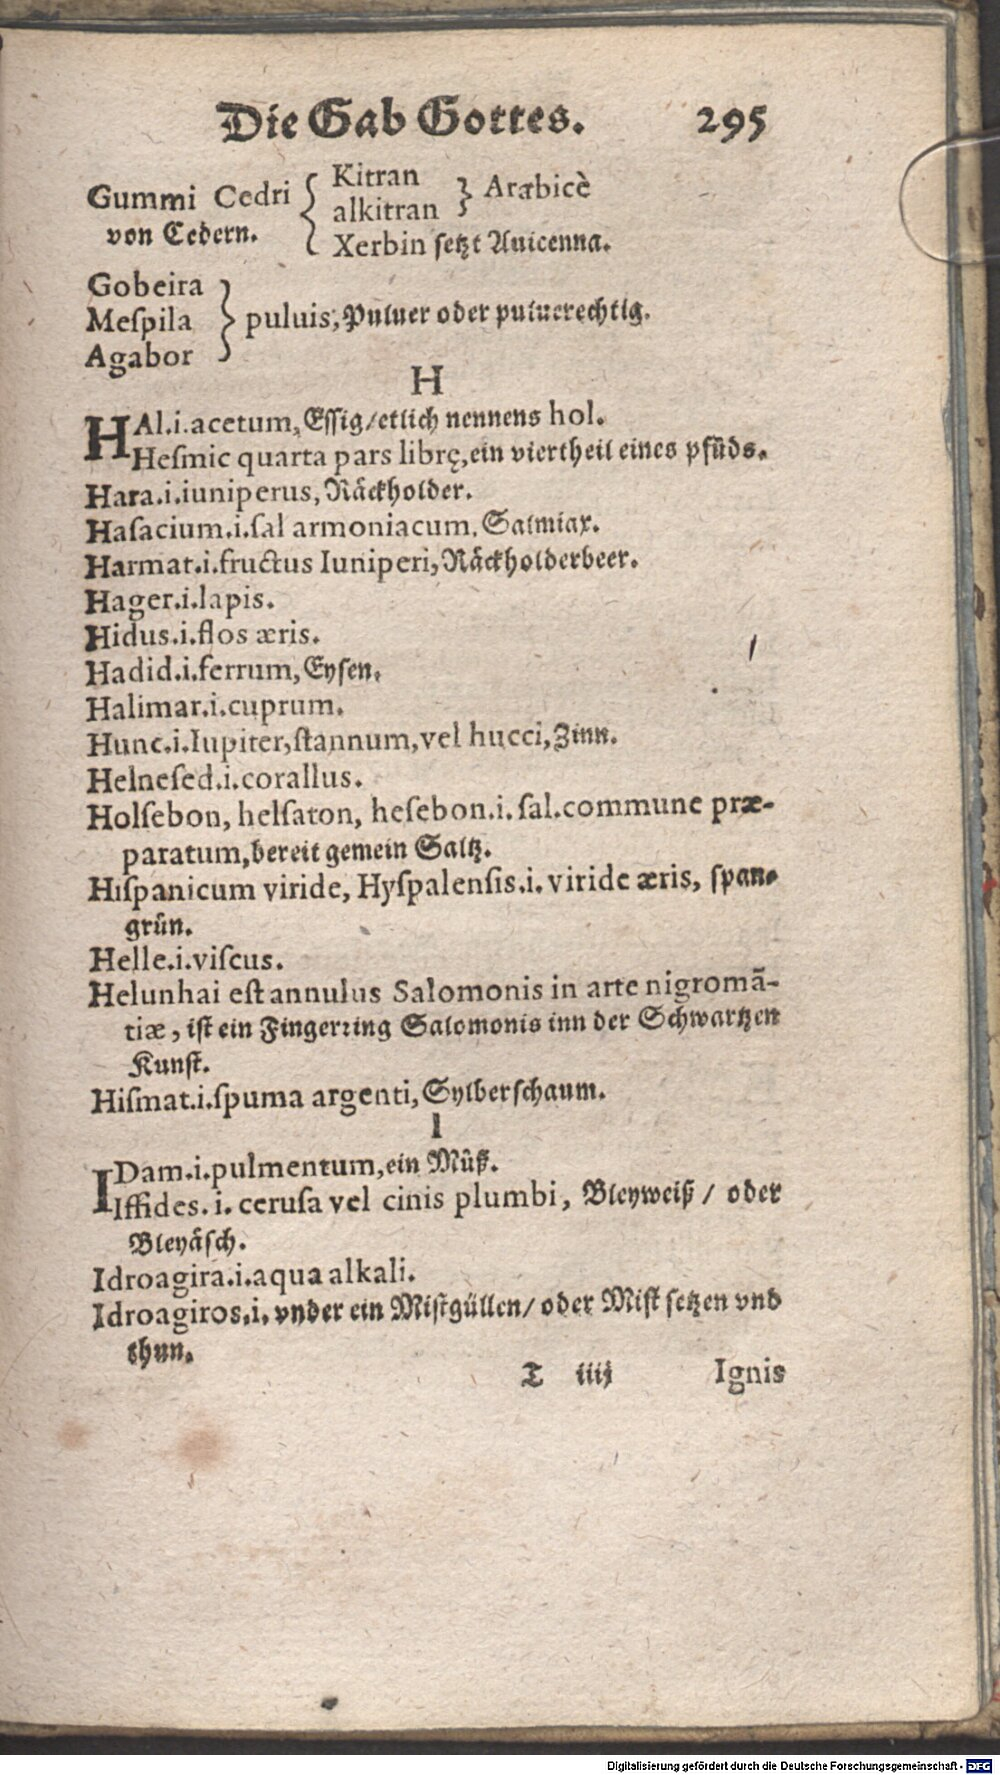 Die Gab Gottes. 295
Gummi Cedri { Kitran
alkitran } Arabicè
von Cedern. Xerbin ſetzt Auicenna.
Gobeira
Meſpila } puluis, Puluer oder puluerechtig.
Agabor
H
HAl.i.acetum, Eſſig/etlich nennens hol.
Heſmic quarta pars librę, ein viertheil eines pfūds.
Hara.i.iuniperus, Räckholder.
Haſacium.i.ſal armoniacum, Salmiax.
Harmat.i.fructus Iuniperi, Räckholderbeer.
Hager.i.lapis.
Hidus.i.flos æris.
Hadid.i.ferrum, Eyſen.
Halimar.i.cuprum.
Hunc.i.Iupiter, ſtannum, vel hucci, Zinn.
Helneſed.i.corallus.
Holſebon, helſaton, heſebon.i.ſal.commune præ-
paratum, bereit gemein Saltz.
Hiſpanicum viride, Hyſpalenſis.i.viride æris, ſpan-
grün.
Helle.i.viſcus.
Helunhai eſt annulus Salomonis in arte nigromā-
tiæ, iſt ein Fingerring Salomonis inn der Schwartzen
Kunſt.
Hiſmat.i.ſpuma argenti, Sylberſchaum.
I
IDam.i.pulmentum, ein Müß.
Iffides.i.ceruſa vel cinis plumbi, Bleyweiß / oder
Bleyäſch.
Idroagira.i.aqua alkali.
Idroagiros.i. vnder ein Miſtgüllen/ oder Miſt ſetzen vnd
thun.
T iiij Ignis
Digitalisierung gefördert durch die Deutsche Forschungsgemeinschaft - DFG